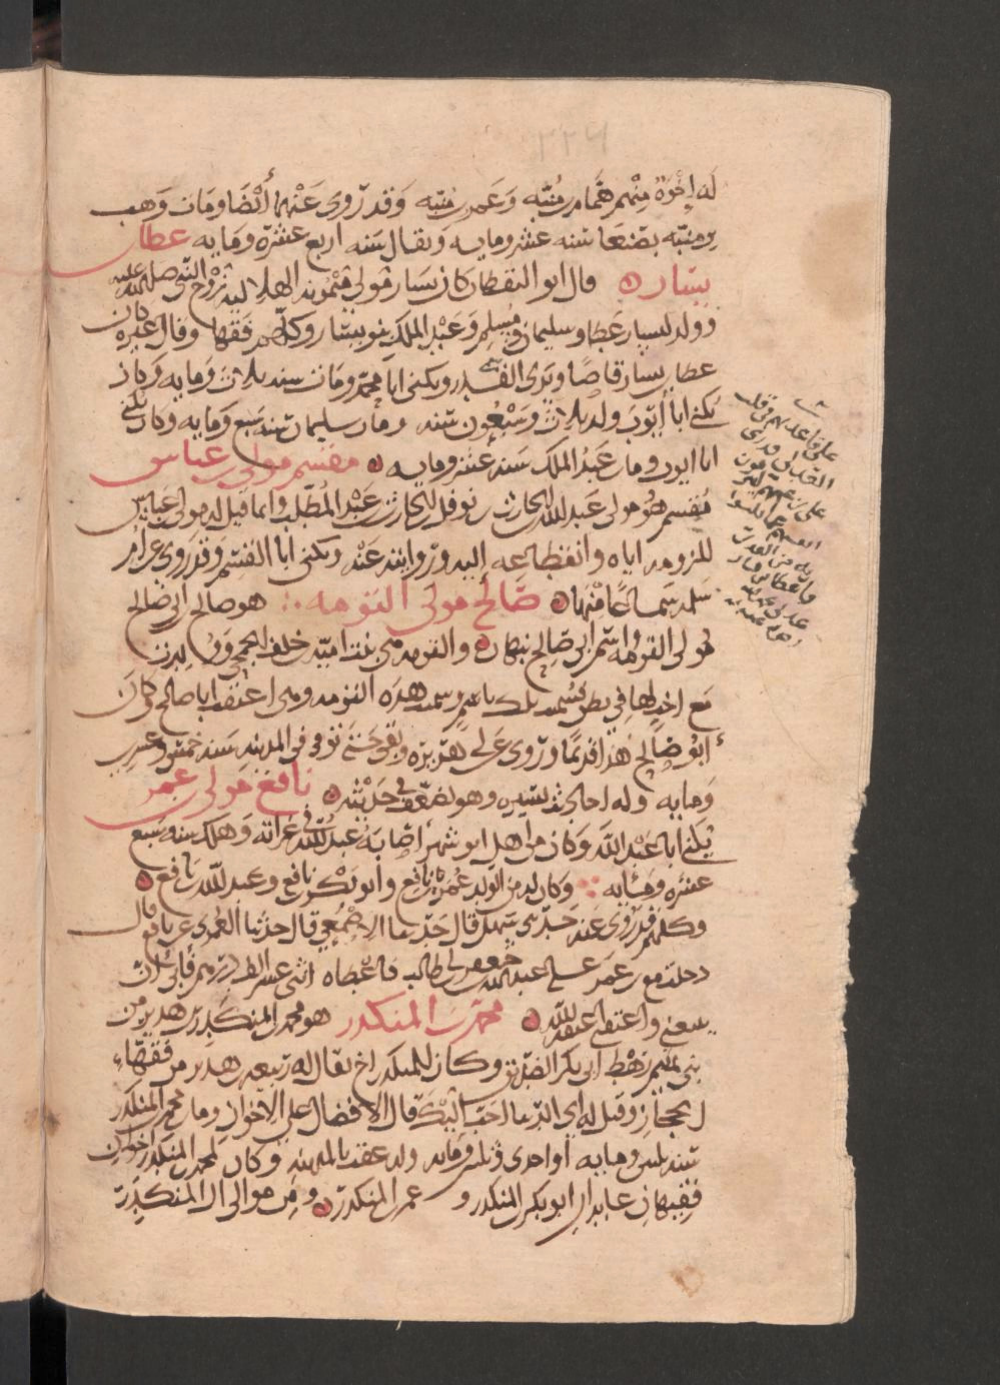 ٢٢٦
له إخوة منهم همام بن منبه وعمر بن منبه وقد روى عنهما أيضا ومات وهب
بن منبه بصنعا سنه عشر ومايه ويقال سنه اربع عشرة ومايه عطا بن
يسار قال ابو اليقظان كان يسار مولى ميمونه الهلاليه زوج النبي صلى الله عليه
وولد ليسار عطا وسليمان ومسلم وعبد الملك بنو يسار وكلهم فقها وقال غيره كان
عطا بن يسار قاصا ويرى القدر ويكنى ابا محمد ومات سنه ثلاث ومايه وكان
يكنى ابا أيوب ولد ثلاث وسبعون سنه ومات سليمان سنه سبع ومايه وكان يكنى
ابا ايوب ومات عبد الملك سنه عشر ومايه مقسم مولى بن عباس
مقسم هو مولى عبد الله بن الحارث بن نوفل بن الحارث بن عبد المطلب وانما قيل له مولى بن عباس
للزومه اياه وانقطاعه إليه وروايته عنه ويكنى ابا القسم وقد روى عن ام
سلمه سماعا منها صالح مولى التومه هو صالح بن ابي صالح
مولى التومه واسم ابي صالح نبهان والتومه هي بنت اميه بن خلف الجمحي ولدت
مع اخت لها في بطن فسميت تلك باسم وسميت هذه التومه وهي اعتقت ابا صالح وكان
أبو صالح هذا قديما وروى عن ابي هريره وبقي حتى توفي في المدينه سنه خمس وعشرين
ومايه وله احاديث يسيره وهو يضعف في حديثه نافع مولى بن عمر
يكنى ابا عبد الله وكان من اهل ابرشهر أصابه عبد الله في غزاته وهلك سنه سبع
عشره ومايه وكان له من الولد عمر بن نافع وأبو بكر بن نافع وعبد الله بن نافع
وكلهم قد روى عنه حدثني سهل قال حدثنا الاصمعي قال حدثنا العمري عن نافع قال
دخلت مع بن عمر على عبد الله بن جعفر بن ابي طالب فاعطاه اثنى عشر الف درهم فأبى أن
يبيعني واعتقني اعتقه الله محمد بن المنكدر هو محمد بن المنكدر بن هدير من
بني تيم رهط ابي بكر الصديق وكان للمنكدر اخ يقال له ربيعه بن هدير من فقهاء
الحجاز وقيل له اي الدنيا احب اليك قال الافضال على الاخوان ومات محمد بن المنكدر
سنه ثلثين ومايه أو احدى وثلثين ومايه وله عقب بالمدينه وكان لمحمد بن المنكدر اخوان
فقيهان عابدان ابو بكر بن المنكدر و عمر بن المنكدر ومن موالى ال المنكدر